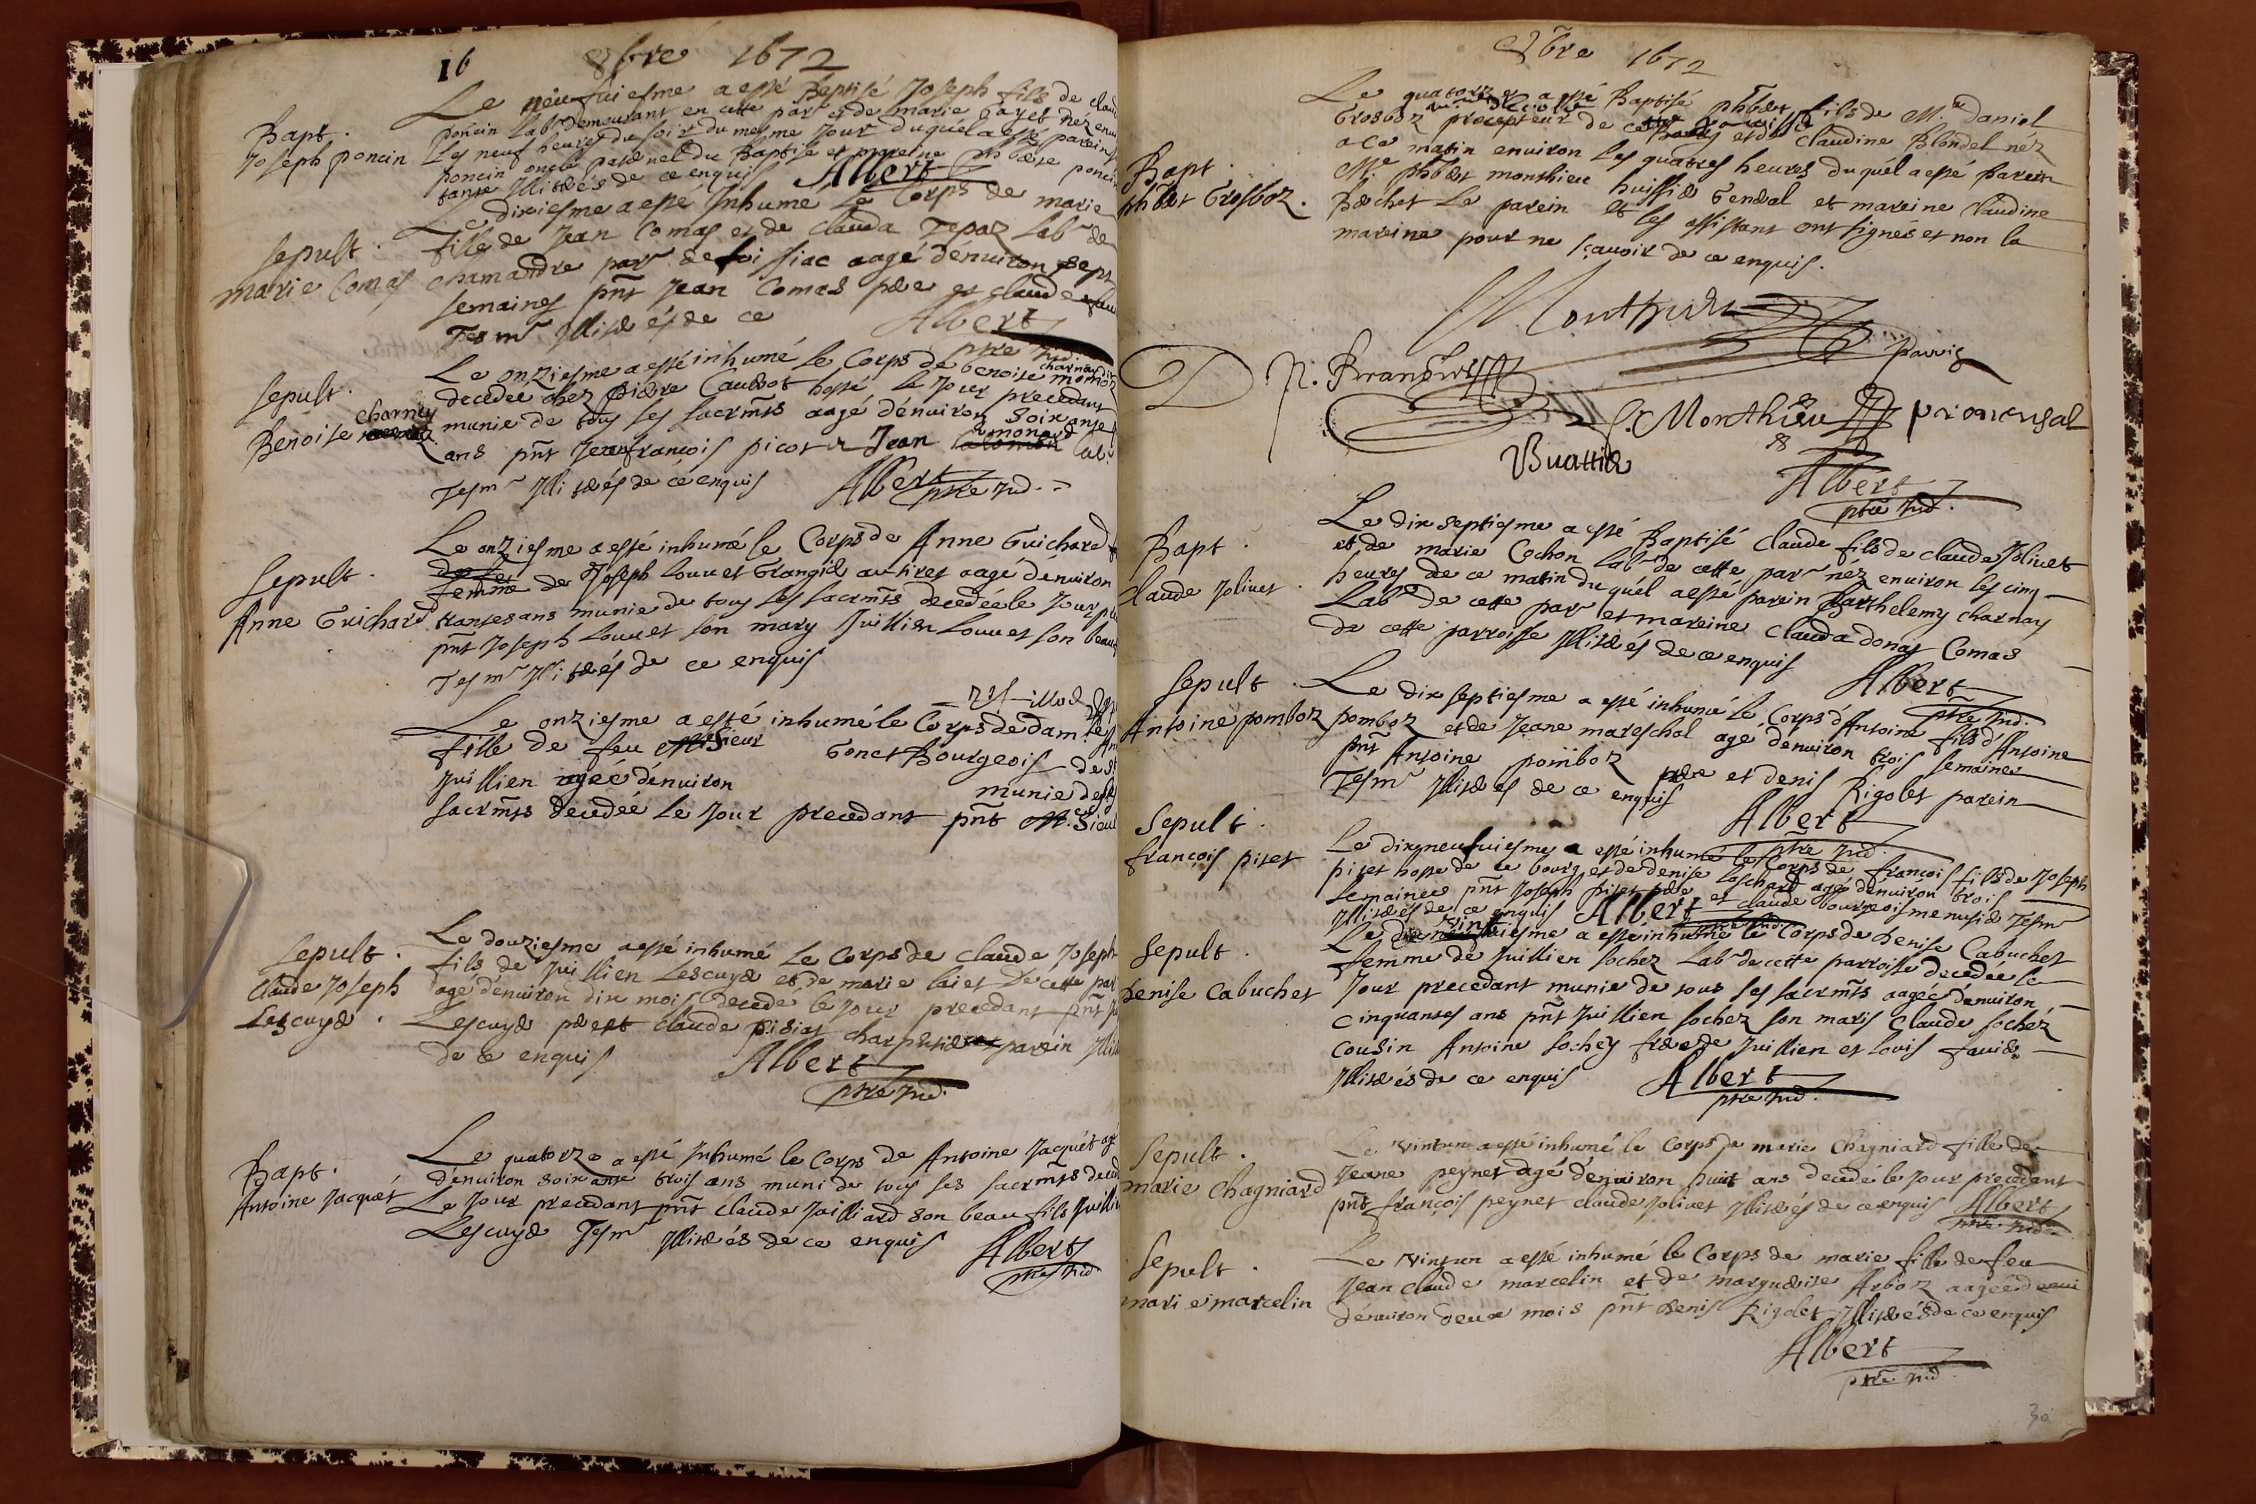 16
8bre 1672
Bapt.
Joseph poncin
Le neufuiesme a esté Baptisé Joseph fils de
poncin Labr demeurant en cette parr et de marie Gayet néz
Les neuf heures du soir du mesme Jour duquél a esté parein
poncin oncle paternel du Baptisé et mareine phberte poncin
tante Jllitérés de ce enquis Albert
Sepult.
marie Comas
Le dixiesme a esté Inhumé Le Corps de marie
fille de Jean Comas et de Clauda Tepaz Labr de
chamandre parr de foissiac aagé dénuiron sept
semaines pnt Jean Comas pere et claude
Tesmr Jllitérés de ce Albert
ptre Jnd
Sepult.
Benoise charnay
Le onziesme a esté inhumé le Corps de benoise
decedee chez pierre Caudrot hoste le Jour precedant
munie de tous ses sacrmts aagé dénuiron soixante
ans pnt Jean françois picot et Jean monard
Tesmr Jllitérés de cé enquis Albert
ptre Jnd.
Sepult.
Anne Guichard
Le onziesme a esté inhumé le Corps de Anne Guichard
femme de Joseph Louuet Granger aux tires aagé dénuiron
trantes ans munie de tous ses sacrmts decedée le Jour
pnt Joseph Louuet son mary Juillien Louuet son beau
Tesmr Jllitérés de ce enquis
Le onziesme a esté inhumé le Corps de damlle
fille de feu Sieur Gonet Bourgeois de St
Juillien agéé dénuiron munie de ses
sacrmts decedéé Le Jour precedant pnt Sieur
Sepult.
Claude Joseph
Lescuyer.
Le douziesme a esté inhumé Le Corps de Claude Joseph
fils de Juillien Lescuyer et de marie laiet De cette parr
agé dénuiron dix mois decede le Jour precedant pnt
Lescuyer pere et claude pisiat charpentier parein
de ce enquis Albert
ptre Jnd.
Bapt.
Antoine Jacquét
Le quatorze a esté Inhumé le Corps de Antoine Jacquét
dénuiron soixante trois ans muni de tous ses sacrmts
Le Jour precedant pnt Claude Jailliard son beau fils
Lescuyer Tesmr Jllitérés de ce enquis Albert
ptre Jnd
8bre 1672
Bapt.
phbert Grosboz.
Le quatorze a esté Baptisé phbert fils de Mre daniel
Grosboz precepteur de cette et de Claudine Blondel néz
a ce matin enuiron Les quatres heures duquél a esté parein
Mre phbert monthieu huissier General et mareine Claudine
Bochet Le parein et les assistant ont signes et non la
mareine pour ne sçauoir de ce enquis.
Monthieu
parvis
P. Monthieu prouensal
Buattier
Albert
ptre Jnd.
Bapt.
Claude Joliuet.
Le dix septiesme a esté Baptisé Claude fils de claude Joliuet
et de marie Cochon Labr de cette parr néz enuiron les cinq
heures de ce matin duquél a esté parein Barthelemy charnay
Labr de cette parr et mareine Clauda donat Comas
de cette parroisse Jllitérés de ce enquis Albert
ptre Jnd.
Sepult.
Antoine pomboz
Le dix septiesme a esté inhumé le Corps d'Antoine fils d'Antoine
pomboz et de Jeane mareschal agé dénuiron trois semaines
pnt Antoine pomboz pere et denis Rigolet parein
Tesmr Jllitérés de ce enquis Albert
ptre Jnd.
Sepult.
françois pitet
Le dixneufuiesme a esté inhumé le Corps de françois fils de Joseph
pitet hoste de ce bourg et de denise Loschard agé dénuiron trois
semaines pnt Joseph pitet pere et claude bourgeois menusier Tesmr
Jllitérés de ce enquis Albert
ptre Jnd.
Sepult.
denise Cabuchet
Le vintiesme a esté inhumé le Corps de denise Cabuchet
femme de Juillien sochez Labr de cette parroise decedée le
Jour precedant munie de tous ses sacrmts aagéé dénuiron
cinquantes ans pnt Juillien sochez son maris Claude sochéz
cousin Antoine sochéz frere de Juillien et Louis fauier
Jllitérés de ce enquis Albert
ptre Jnd.
Sepult.
marie Chagniard
Le vintun a esté inhumé le Corps de marie Chagniard fille de
Jeane peynet agé dénuiron huit ans decedé le Jour precedent
pnt françois peynet claude Joliuet Jllitérés de ce enquis Albert
ptre Jnd
Sepult.
marie marcelin
Le vintun a esté inhumé le Corps de marie fille de feu
Jean Claude marcelin et de marguerite Arboz aageé
dénuiron deux mois pnt denis Rigolet Jllitérés de ce enquis
Albert
ptre Jnd.
30